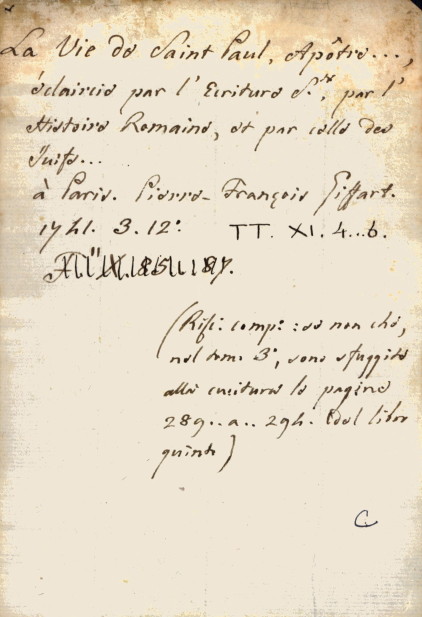 La Vie de Saint Paul, Apôtre...,
éclaircie par l' Ecriture S.te, par l'
Histoire Romaine, et par celle des
Juifs...
à Paris. Pierre-François Giffart.
1741. 3. 12º. TT. XI. 4..6.
(Rifi: comp: :se non che,
nel tom: 3º, sono sfuggite
alla cucitura le pagine
289..a..294. del libro
quinto)
C.